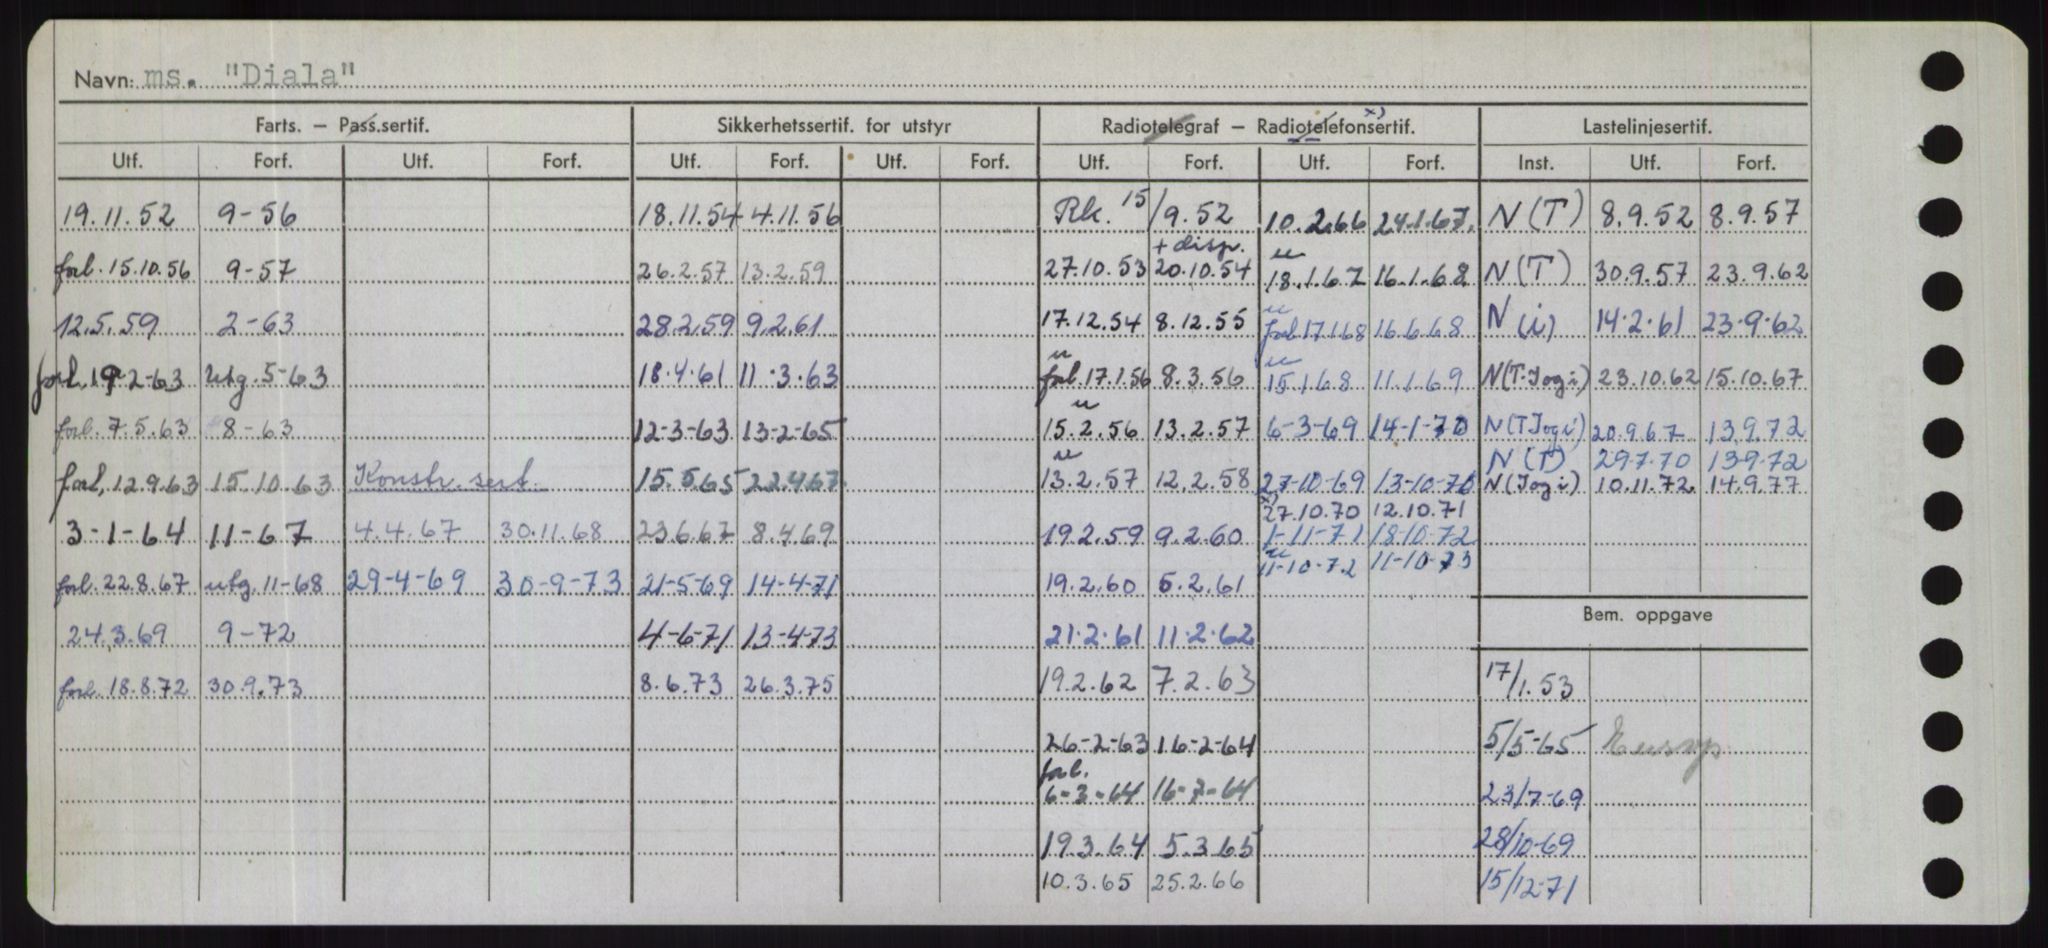 Navn: ms. "Diala"
Farts. – Pass.sertif. Sikkerhetssertif. for utstyr Radiotelegraf – Radiotelefonsertif. x) Lastelinjesertif.
Utf. Forf. Utf. Forf. Utf. Forf. Utf. Forf. Utf. Forf. Utf. Forf. Inst. Utf. Forf.
19.11.52 9-56 18.11.54 4.11.56 Rk. 15/9.52 10.2.66 24.1.67. N(T) 8.9.52 8.9.57
+ disp. u
forl. 15.10.56 9-57 26.2.57 13.2.59 27.10.53 20.10.54 18.1.67 16.1.68 N(T) 30.9.57 23.9.62
u
12.5.59 2-63 28.2.59 9.2.61 17.12.54 8.12.55 forl 17.1.68 16.6.68 N(i) 14.2.61 23.9.62
u u
forl. 19-2-63 utg. 5-63 18.4.61 11.3.63 forl. 17.1.56 8.3.56 15.1.68 11.1.69 N(T.Jogi) 23.10.62 15.10.67
u
forl. 7.5.63 8-63 12-3-63 13-2-65 15.2.56 13.2.57 6-3-69 14-1-70 N(TJogi) 20.9.67 13.9.72
u N(T) 29.7.70 13.9.72
forl. 12.9.63 15.10.63 Konstr. sert. 15.5.65 22.4.67. 13.2.57 12.2.58 27-10-69 13-10-70 N(Jogi) 10.11.72 14.9.77
x) 27.10.70 12.10.71
3-1-64 11-67 4.4.67 30.11.68 23.6.67 8.4.69 19.2.59 9.2.60 1-11-71 18-10-72
u 11-10-72 11-10-73
forl. 22.8.67 utg. 11-68 29-4-69 30-9-73 21-5-69 14-4-71 19.2.60 5.2.61
Bem. oppgave
24.3.69 9-72 4-6-71 13-4-73 21.2.61 11.2.62
forl. 18.8.72 30.9.73 8.6.73 26.3.75 19.2.62 7.2.63 17/1.53
26-2-63 16-2-64 5/5-65
forl.
6-3-64 16-7-64 23/7-69
19.3.64 5.3.65 28/10-69
10.3.65 25.2.66 15/12-71